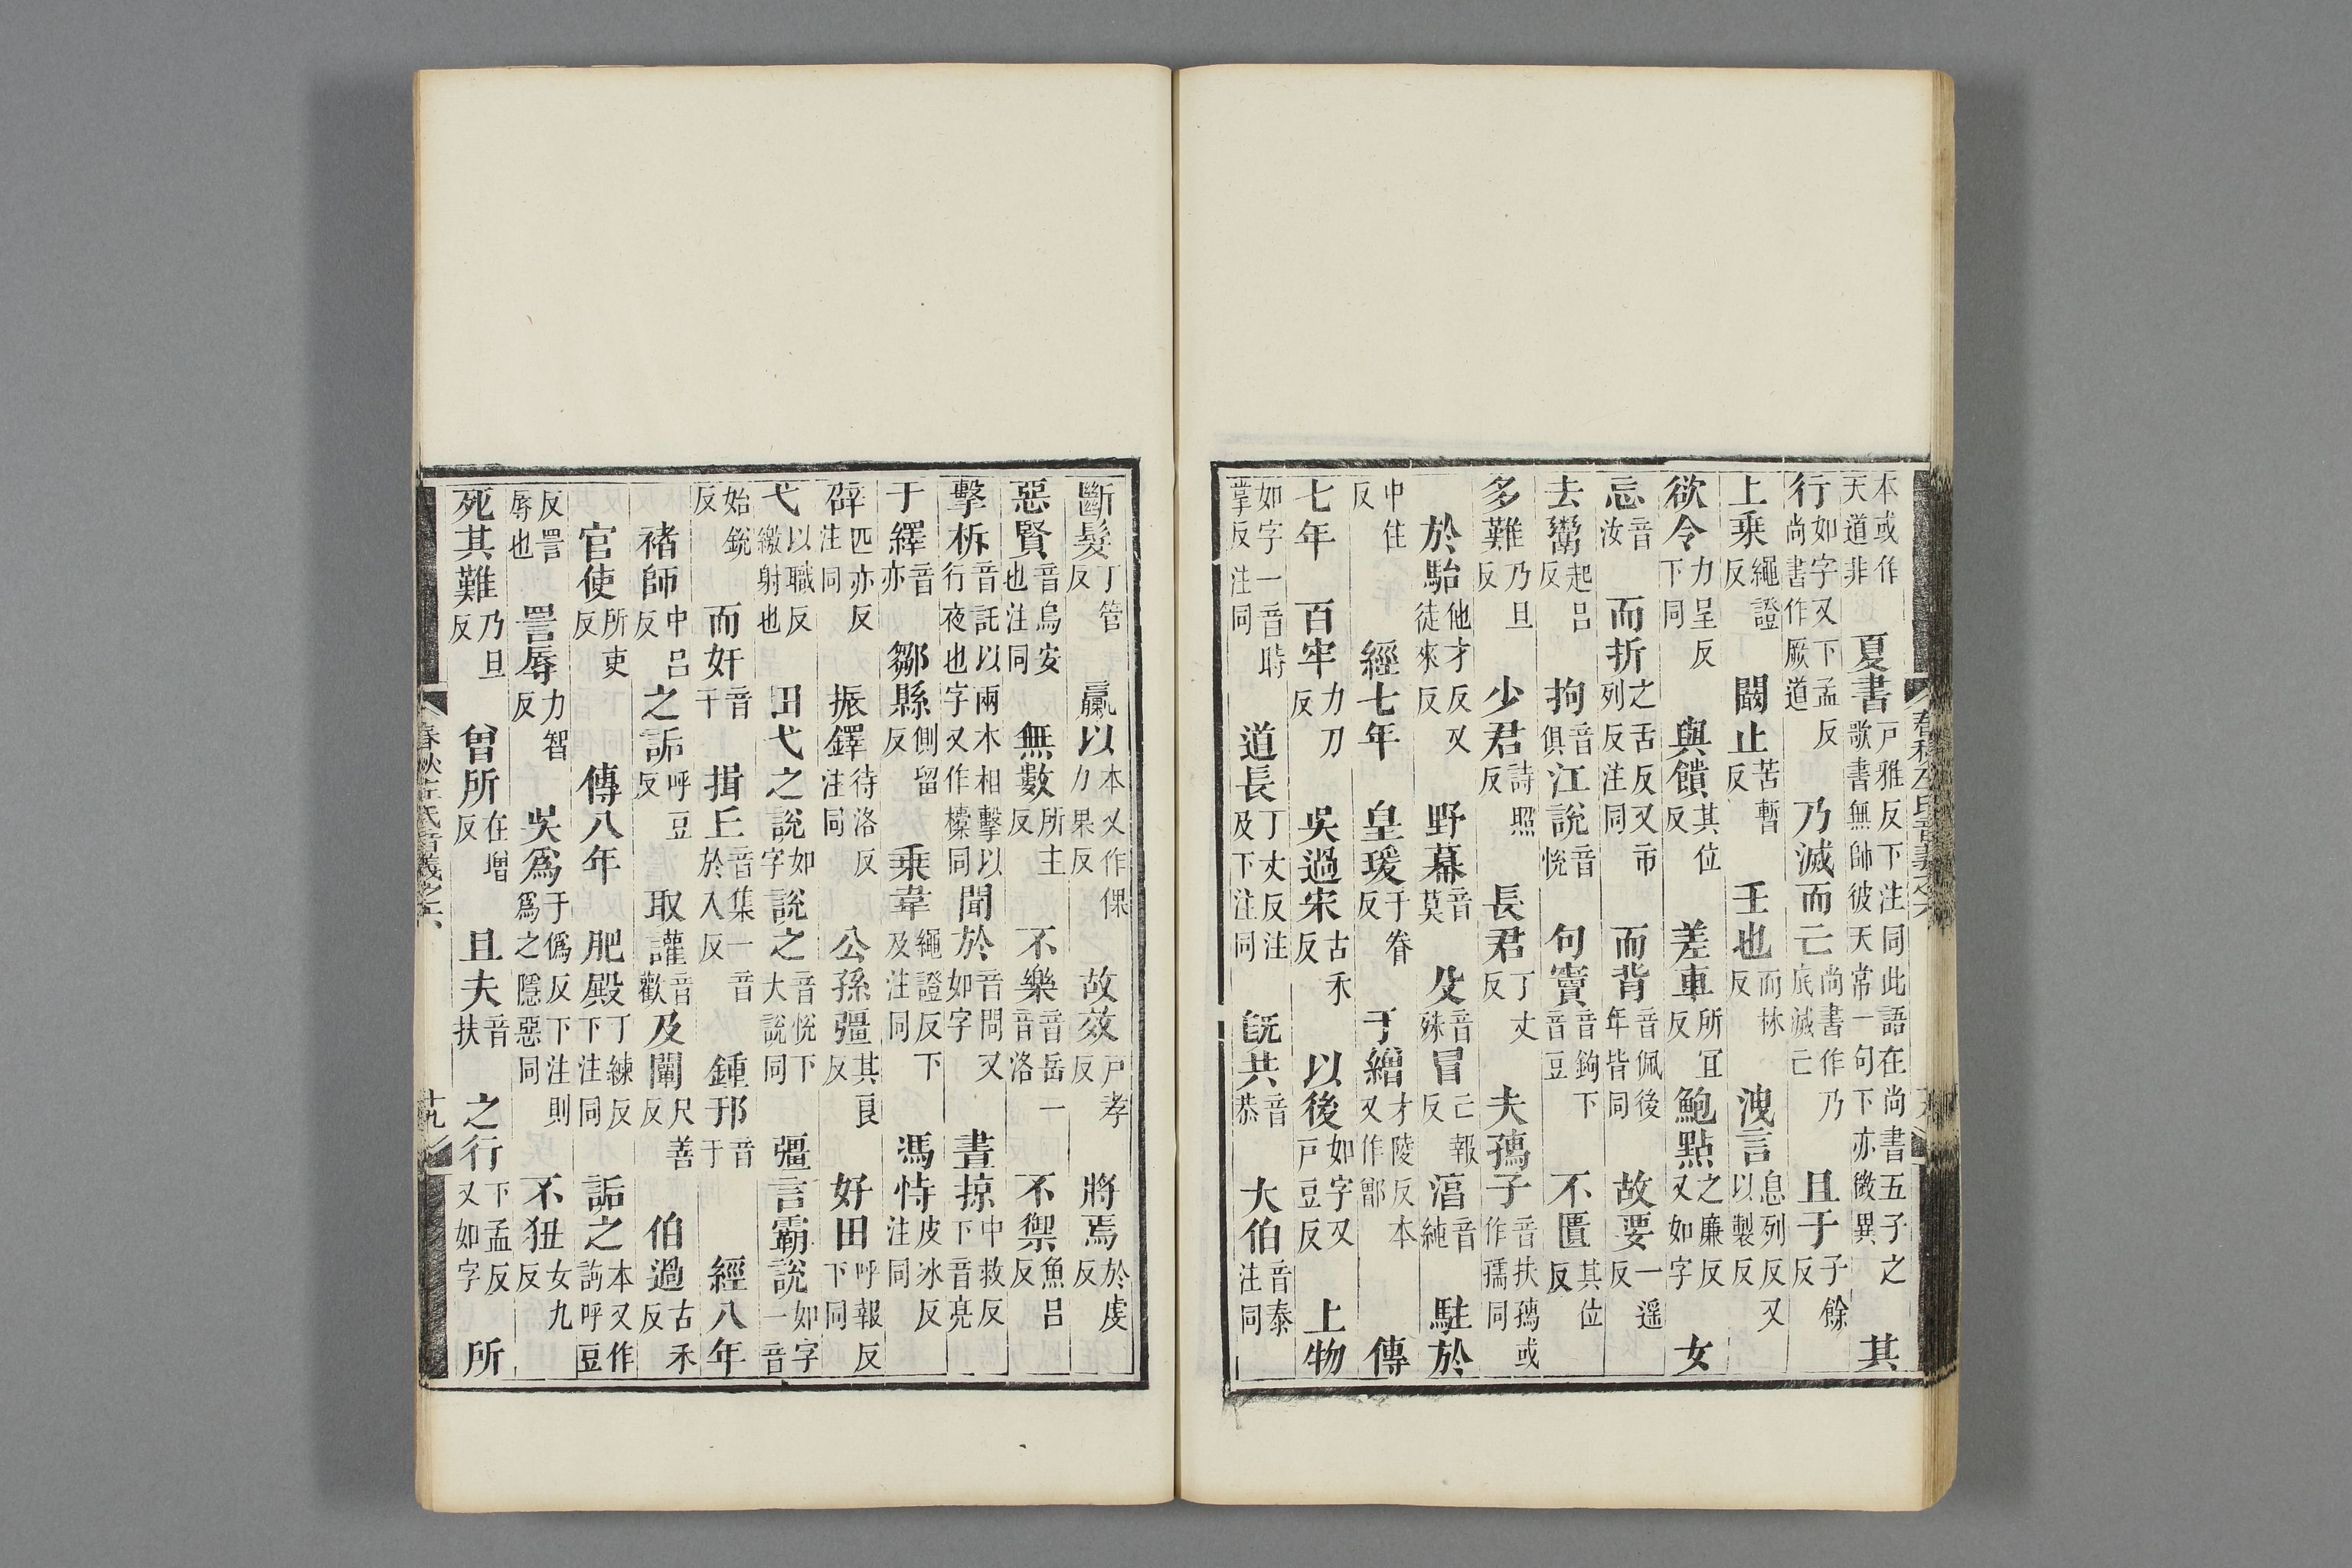 本或作天道非 夏書 戶雅反下注同此語在尚書五子之歌書無帥彼天常一句下亦微異 其
行 如字又下孟反尚書作厥道 乃滅而亡 尚書作乃底滅亡 且于 子餘反
上乗 繩證反 闞止 苦暫反 壬也 而林反 洩言 息列反又以製反
欲令 力呈反下同 與饋 其位反 差車 所宜反 鮑點 之廉反又如字 女
忘 音汝 而折 之舌反又市列反注同 而背 音佩後年皆同 故要 一遥反
去鬻 起呂反 拘 音俱 江說 音悅 句竇 音鉤下音豆 不匱 其位反
多難 乃旦反 少君 詩照反 長君 丁丈反 夫孺子 音扶孺或作孺同
於駘 他才反又徒來反 野幕 音莫 殳 音殊 冒 亡報反 湻 音純 駐於
中住反 經七年 皇瑗 于眷反 于繒 才陵反本又作鄫 傳
七年 百牢 力刀反 吳過宋 古禾反 以後 如字又戶豆反 上物
如字一音時掌反注同 道長 丁丈反注及下注同 旣共 音恭 大伯 音泰注同
春秋左氏音義之六
斷髮 丁管反 臝以 本又作倮力果反 故效 戶孝反 將焉 於虔反
惡賢 音烏安也注同 無數 所主反 不樂 音岳一音洛 不禦 魚呂反
擊柝 音託以兩木相擊以行夜也字又作㯓同 聞於 音問又如字 晝掠 中救反下音亮
于繹 音亦 鄒縣 側留反 乗韋 繩證反下及注同 馮恃 皮冰反注同
辟 匹亦反注同 振鐸 待洛反注同 公孫彊 其良反 好田 呼報反下同
弋 以職反繳射也 田弋之說 如字 說之 音悅下大說同 彊言霸說 如字一音
始銳反 而奸 音干 揖丘 音集一音於入反 鍾邘 音于 經八年
褚師 中呂反 之詬 呼豆反 取讙 音歡 及闡 尺善反 伯過 古禾反
官使 所吏反 傳八年 肥殿 丁練反下注同 詬之 本又作訽呼豆
反詈辱也 詈辱 力智反 吳爲 于僞反下注則爲之隱惡同 不狃 女九反
死其難 乃旦反 曾所 在增反 且夫 音扶 之行 下孟反又如字 所
春秋左氏音義之六 十九